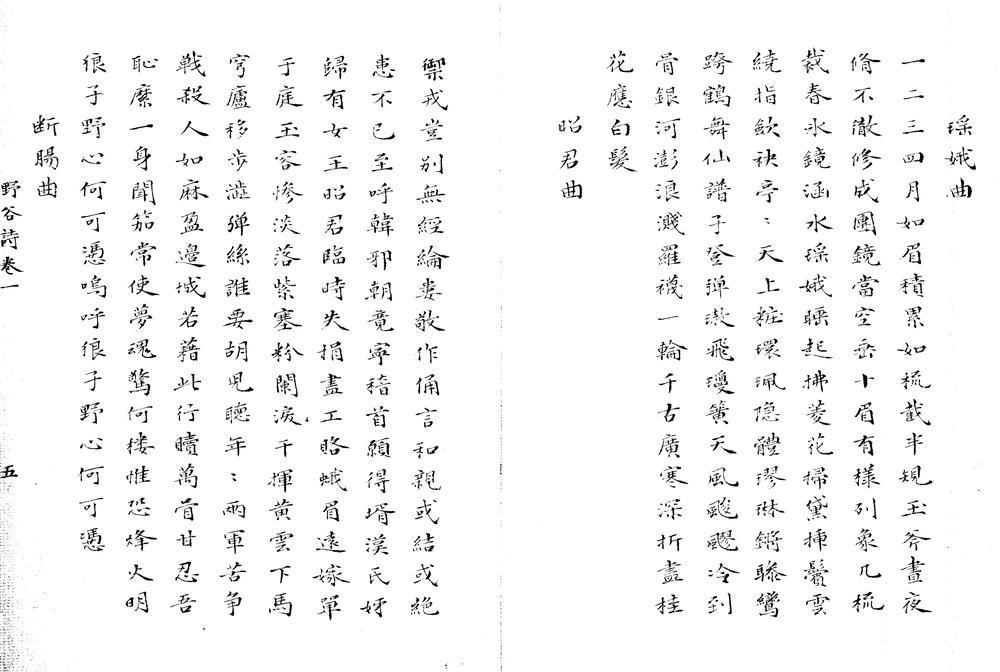 瑶娥曲
一二三四月如眉積累如梳截半規玉斧晝夜
脩不徹修成團鏡當空垂十眉有様列象几梳
裁春氷鏡涵水瑶娥睡起拂菱花掃黛揷鬢雲
繞指歛袂亭〻天上粧環珮隐體璆琳鏘驂鸞
跨鶴舞仙譜子登彈璈飛瓊簧天風颼飀冷到
骨銀河澎浪濺羅襪一輪千古廣寒深折盡桂
花應白髮
昭君曲
禦戎豈別無經綸婁敬作俑言和親或結或絶
患不已至呼韓邪朝竟寧稽首願得壻漢氏妤
歸有女王昭君臨時失捐盡工賂蛾眉遠嫁單
于庭玉容慘淡落紫塞粉闌淚干揮黄雲下馬
穹廬移歩澁彈絲誰要胡兒聴年〻兩軍苦争
戰殺人如麻盈邊城若藉此行贖萬骨甘忍吾
恥縻一身聞笳常使夢魂驚何捿惟恐烽火明
狼子野心何可憑嗚呼狼子野心何可憑
断腸曲
野谷詩卷一
五